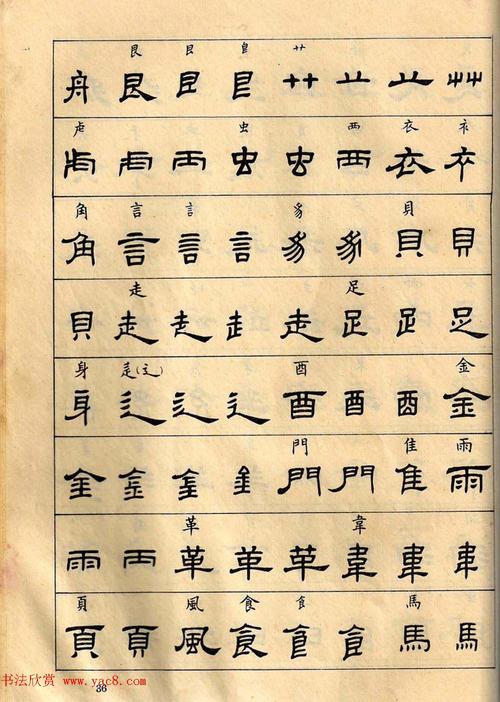 艮 艮 𥃩 艹
舟 艮 艮 艮 艹 艹 艹 艸
虍 虫 西 衣 衤
虍 虍 虍 虫 虫 西 衣 衣
角 言 訁 豸 貝
角 言 言 言 豸 豸 貝 貝
走 足
貝 走 走 走 走 足 足 足
身 辵(辶) 酉 金
身 辶 辶 辶 酉 酉 酉 金
門 隹 雨
金 金 金 金 門 門 隹 雨
革 韋
雨 雨 革 革 革 韋 韋 韋
頁 風 食 飠 馬
頁 頁 風 食 飠 飠 馬 馬
36
书法欣赏 www.yac8.com